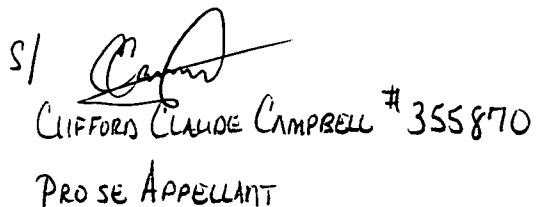 S/
CLIFFORD CLAUDE CAMPBELL #355870
PRO SE APPELLANT